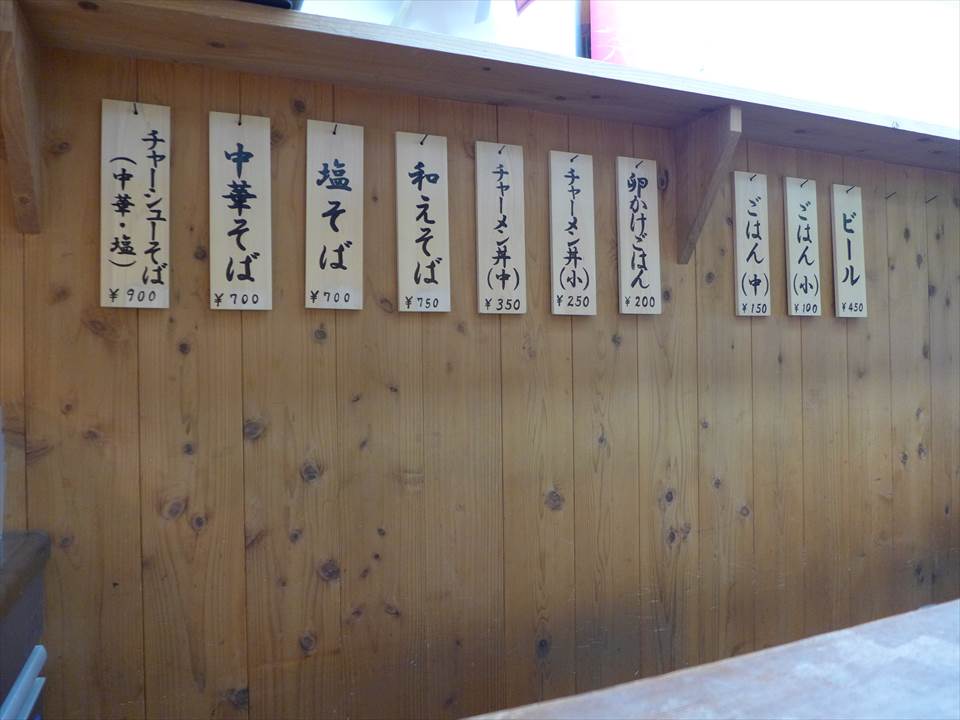 チャーシューそば
(中華・塩)
¥900
中華そば
¥700
塩そば
¥700
和えそば
¥750
チャーメン丼(中)
¥350
チャーメン丼(小)
¥250
卵かけごはん
¥200
ごはん(中)
¥150
ごはん(小)
¥100
ビール
¥450